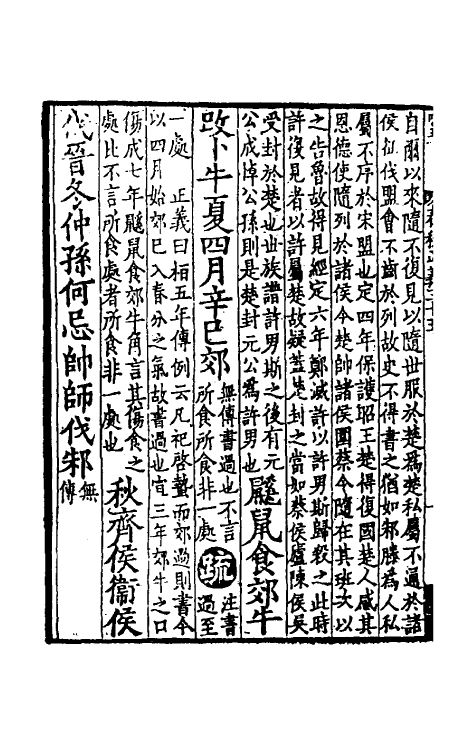 自爾以來隨不復見以隨世服於楚爲楚私屬不通於諸
侯征伐盟會不齒於列故史不得書之猶如邾滕爲人私
屬不序於宋盟也定四年保護昭王楚得復國楚人感其
恩德使隨列於諸侯今楚帥諸侯圍蔡今隨在其班次以
之告魯故得見經定六年鄭滅許以許男斯歸殺之此時
許復見者以許屬楚故疑蓋楚封之當如蔡侯廬陳侯吳
受封於楚也世族譜許男斯之後有元
公成悼公孫則是楚封元公爲許男也
鼷鼠食郊牛
改卜牛夏四月辛巳郊
無傳書過也不言
所食所食非一處
疏
注書
過至
一處 正義曰桓五年傳例云凡祀啓蟄而郊過則書今
以四月始郊巳入春分之氣故書過也宣三年郊牛之口
傷成七年鼷鼠食郊牛角言其傷食之
處此不言所食處者所食非一處也
秋齊侯衞侯
伐晉冬仲孫何忌帥師伐邾
無
傳